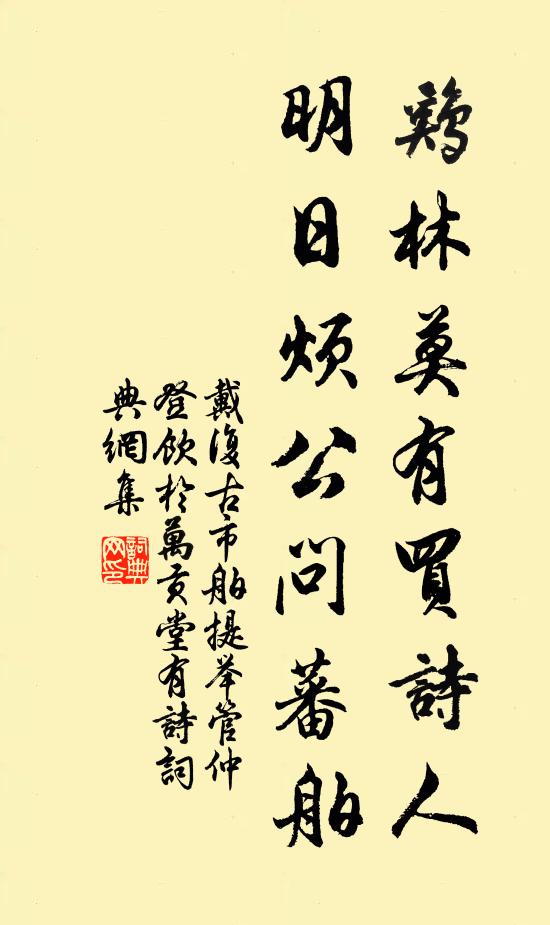 鷄林莫有買詩人
明日煩公問蕃舶
戴復古市舶提举管仲
登飲於萬貢堂有詩詞
典網集
詞典
网印